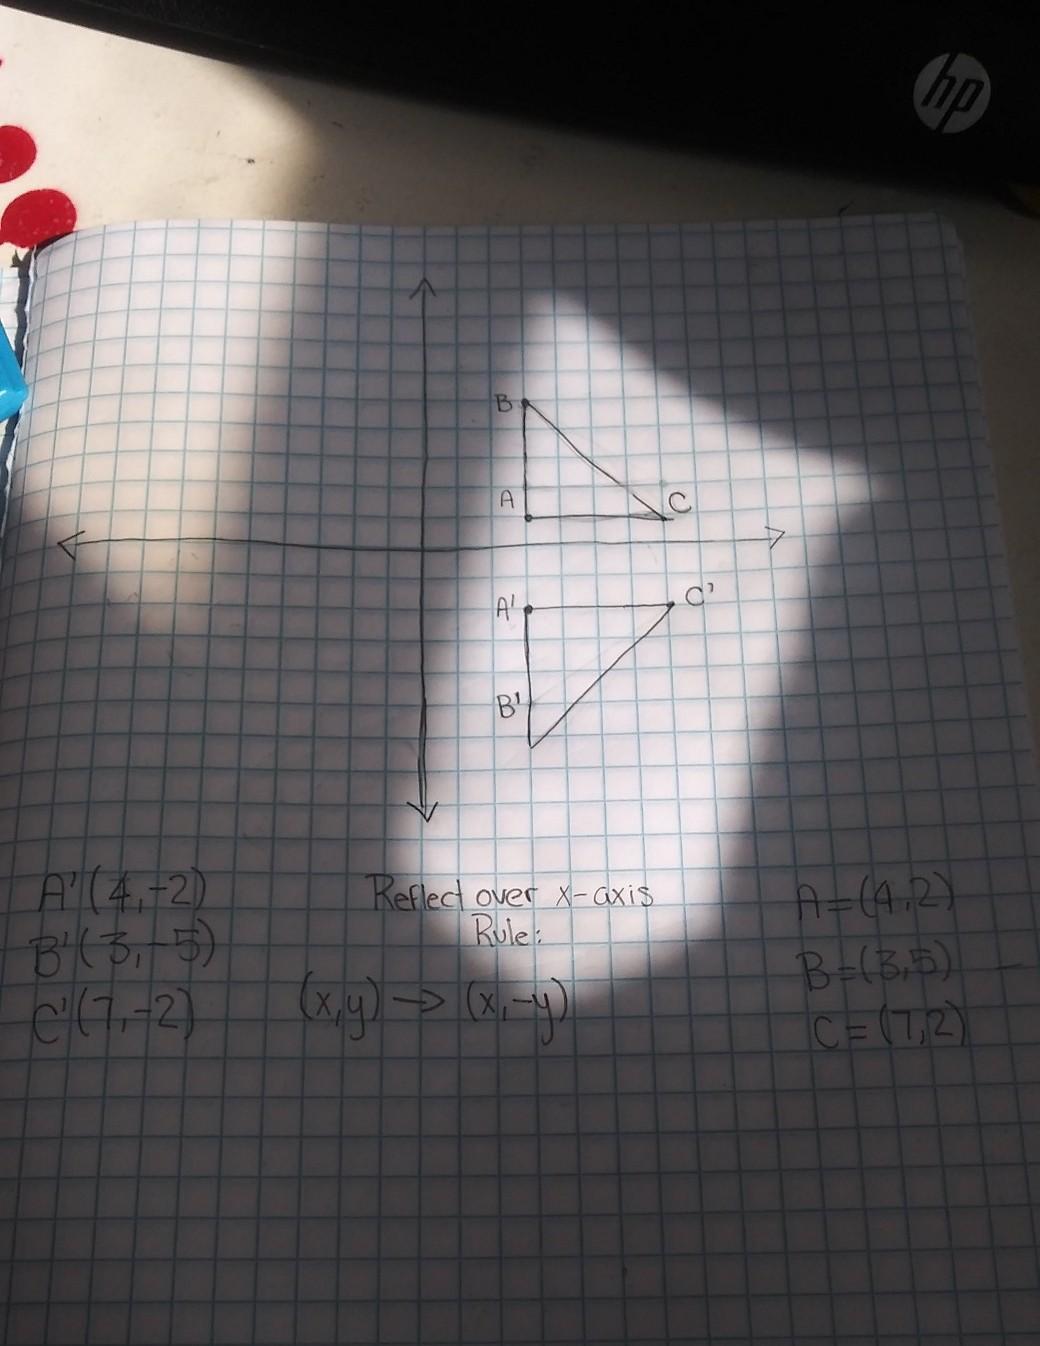 hp
B
A
C
A'
C'
B'
A'(4,-2)
B'(3,-5)
C'(7,-2)
Reflect over x-axis
Rule:
(x,y) → (x,-y)
A=(4,2)
B=(3,5)
C=(7,2)